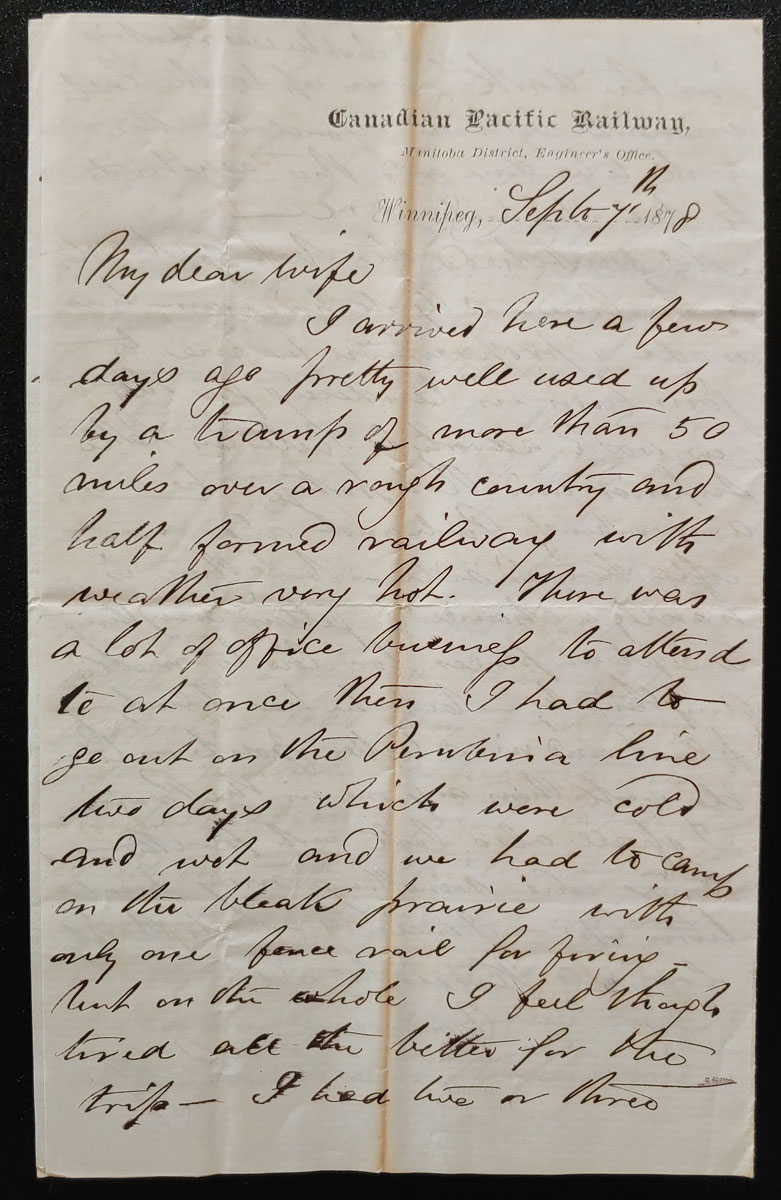 Canadian Pacific Railway,
Manitoba District, Engineer's Office.
Winnipeg, Sept 7th 1878
My dear wife
I arrived here a few
days ago pretty well used up
by a tramp of more than 50
miles over a rough country and
half formed railway with
weather very hot. There was
a lot of office business to attend
to at once then I had to
go out on the Pembina line
two days which were cold
and wet and we had to camp
on the bleak prairie with
only one fence rail for firing -
but on the whole I feel though
tired all the better for the
trip - I had two or three